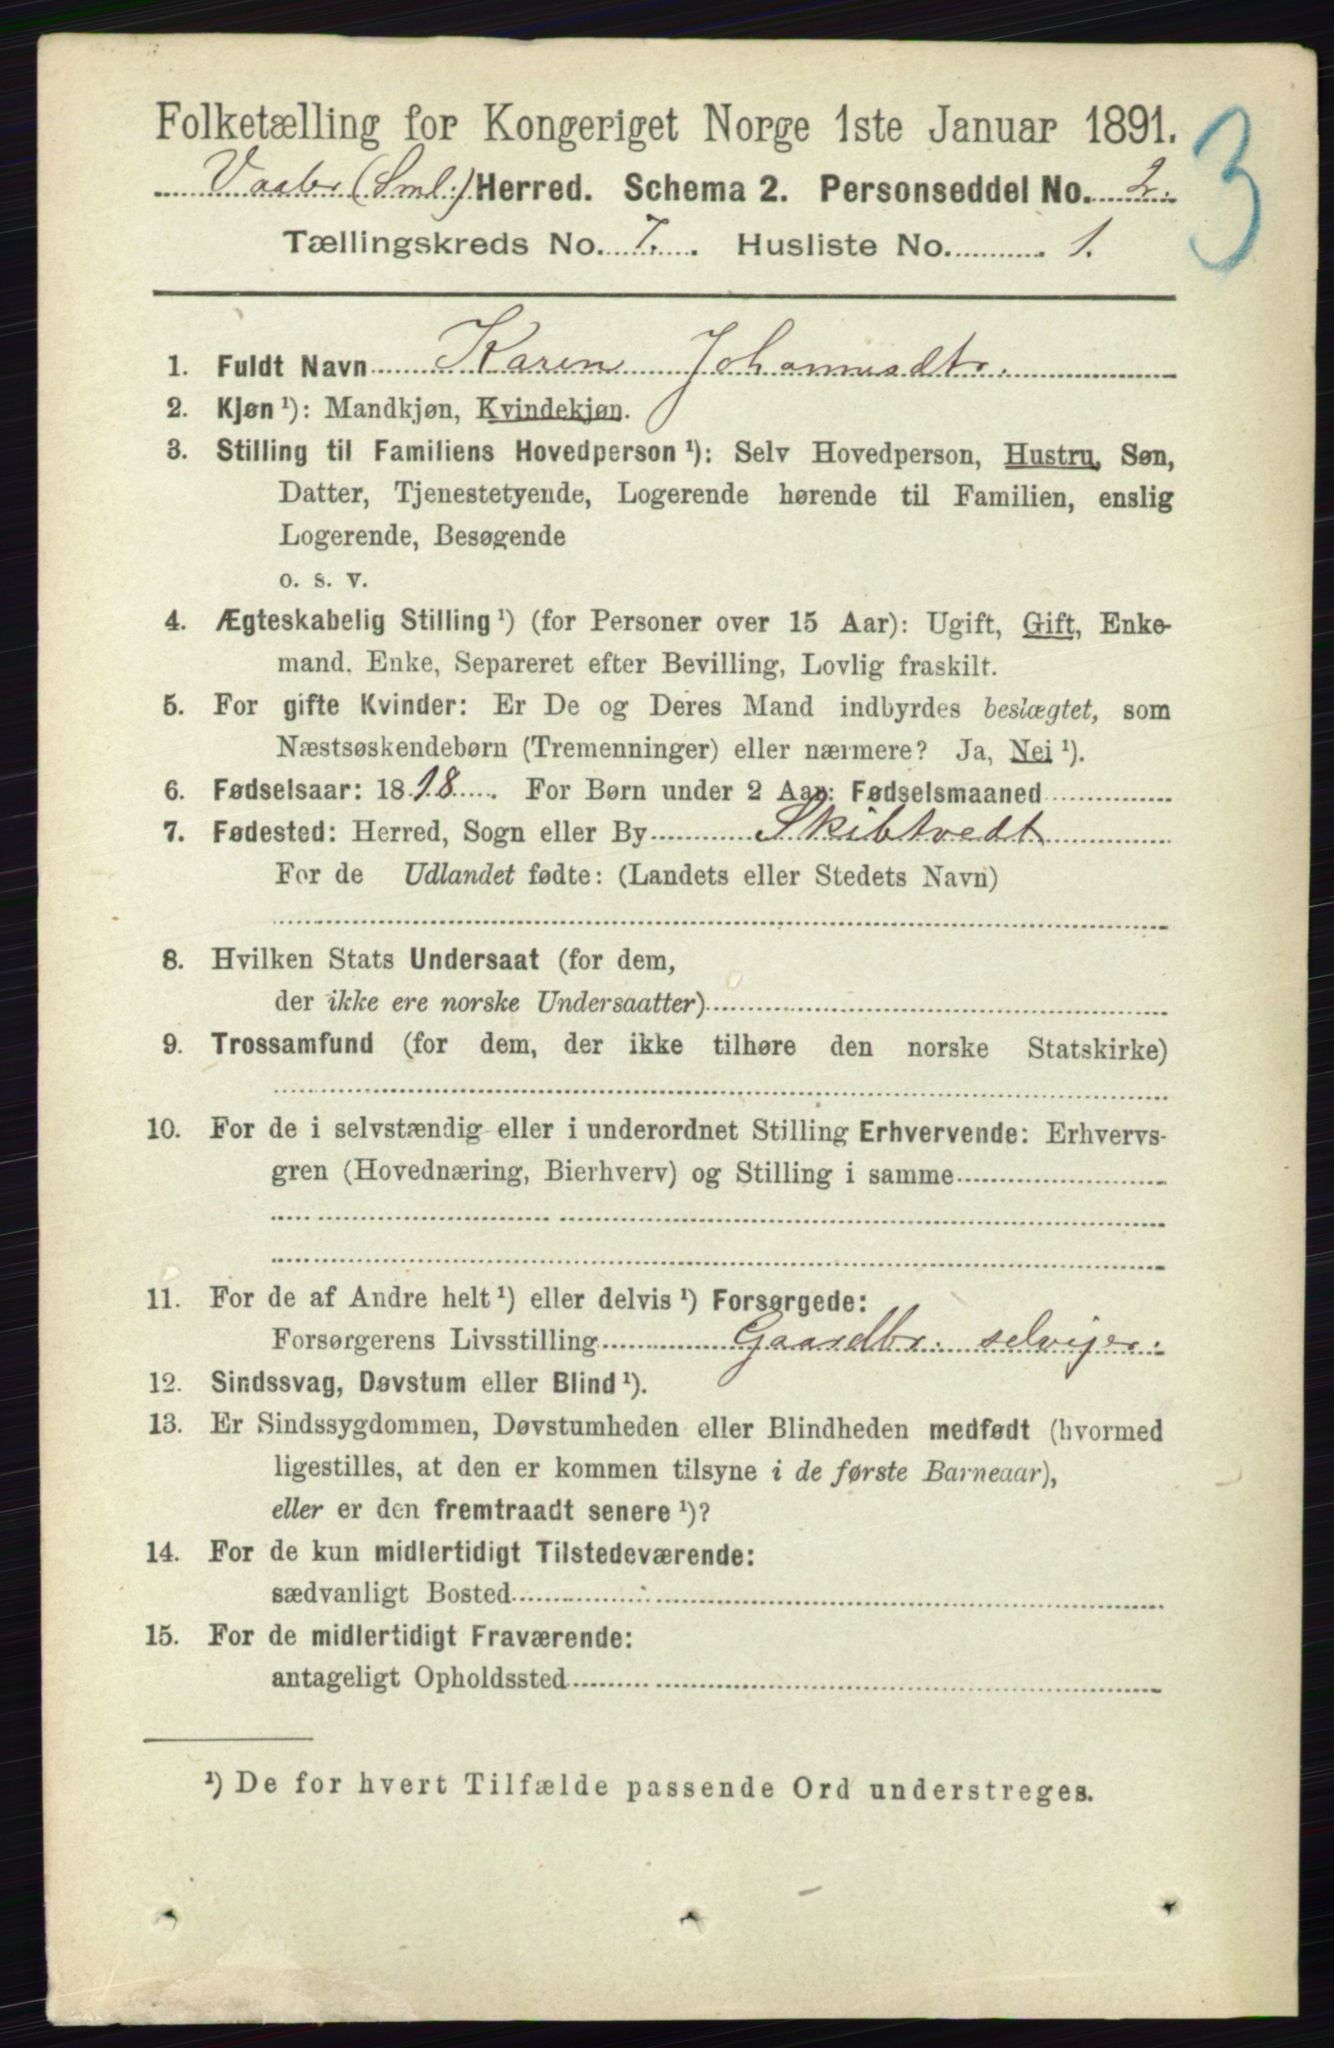 Folketælling for Kongeriget Norge 1ste Januar 1891.
3
Vaaler (Sml:) Herred. Schema 2. Personseddel No. 2.
Tællingskreds No. 7. Husliste No. 1.
1. Fuldt Navn Karen Johannesdtr.
2. Kjøn ¹): Mandkjøn, Kvindekjøn.
3. Stilling til Familiens Hovedperson ¹): Selv Hovedperson, Hustru, Søn,
Datter, Tjenestetyende, Logerende hørende til Familien, enslig
Logerende, Besøgende
o. s. v.
4. Ægteskabelig Stilling ¹) (for Personer over 15 Aar): Ugift, Gift, Enke-
mand, Enke, Separeret efter Bevilling, Lovlig fraskilt.
5. For gifte Kvinder: Er De og Deres Mand indbyrdes beslægtet, som
Næstsøskendebørn (Tremenninger) eller nærmere? Ja, Nei ¹).
6. Fødselsaar: 1818. For Børn under 2 Aar: Fødselsmaaned
7. Fødested: Herred, Sogn eller By Skibtvedt
For de Udlandet fødte: (Landets eller Stedets Navn)
8. Hvilken Stats Undersaat (for dem,
der ikke ere norske Undersaatter)
9. Trossamfund (for dem, der ikke tilhøre den norske Statskirke)
10. For de i selvstændig eller i underordnet Stilling Erhvervende: Erhvervs-
gren (Hovednæring, Bierhverv) og Stilling i samme
11. For de af Andre helt ¹) eller delvis ¹) Forsørgede:
Forsørgerens Livsstilling Gaardbr. selvejer.
12. Sindssvag, Døvstum eller Blind ¹).
13. Er Sindssygdommen, Døvstumheden eller Blindheden medfødt (hvormed
ligestilles, at den er kommen tilsyne i de første Barneaar),
eller er den fremtraadt senere ¹)?
14. For de kun midlertidigt Tilstedeværende:
sædvanligt Bosted
15. For de midlertidigt Fraværende:
antageligt Opholdssted
¹) De for hvert Tilfælde passende Ord understreges.